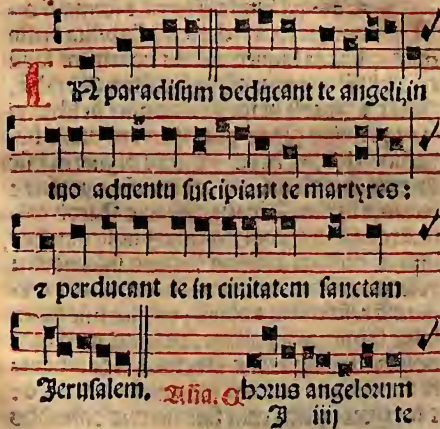 IN paradisum deducant te angeli, in
tuo aduentu suscipiant te martyres:
⁊ perducant te in ciuitatem sanctam
Jerusalem. Aña. Chorus angelorum
J iiij te